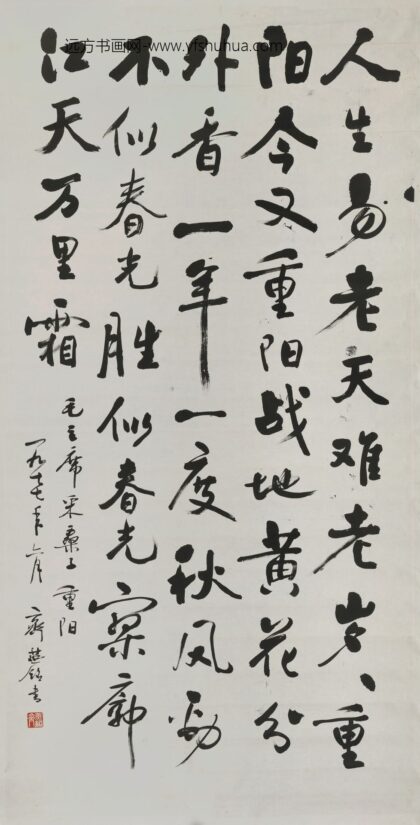 远方书画网-www.yfshuhua.com
人生易老天难老岁々重
阳今又重阳战地黄花分
外香一年一度秋风劲
不似春光胜似春光寥廓
江天万里霜
毛主席采桑子重阳
一九七七年六月 齐燕铭书